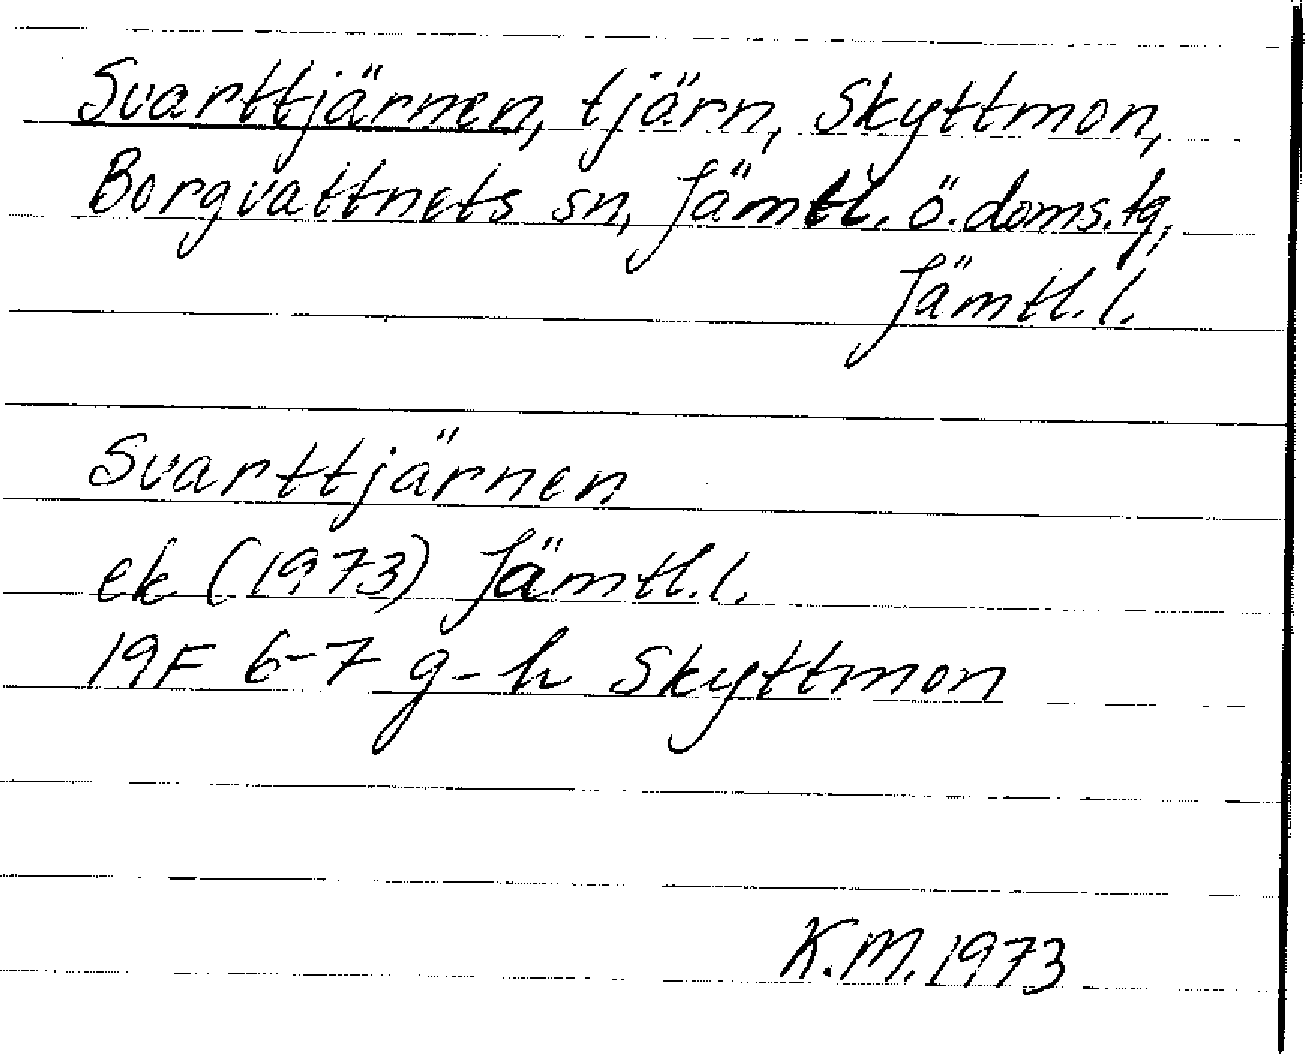 Svarttjärnen, tjärn, Skyttmon,
Borgvattnets sn, Jämtl. ö. doms. tg,
Jämtl. l.
Svarttjärnen
ek (1973) Jämtl. l.
19F 6-7 g-h Skyttmon
K.M. 1973